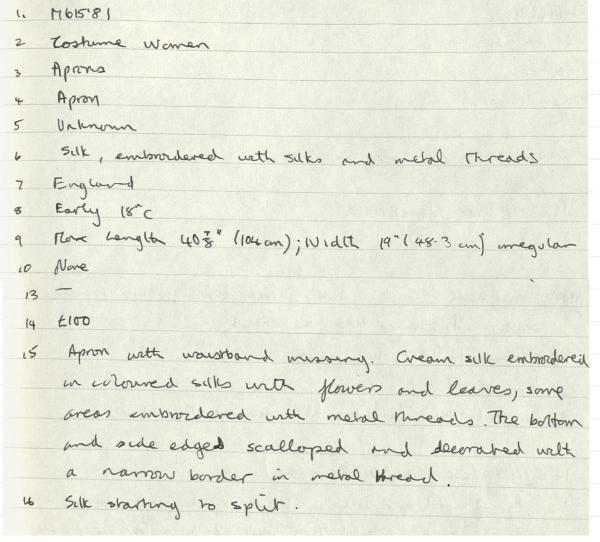 1. M615'81
2 Costume Women
3 Aprons
4 Apron
5 Unknown
6 Silk, embroidered with silks and metal threads
7 England
8 Early 18"C
9 Max Length 40⅞" (104cm); Width 19" (48.3 cm) irregular
10 None
13 —
14 £100
15 Apron with waistband missing. Cream silk embroidered
in coloured silks with flowers and leaves, some
areas embroidered with metal threads. The bottom
and side edged scalloped and decorated with
a narrow border in metal thread.
16 Silk starting to split.